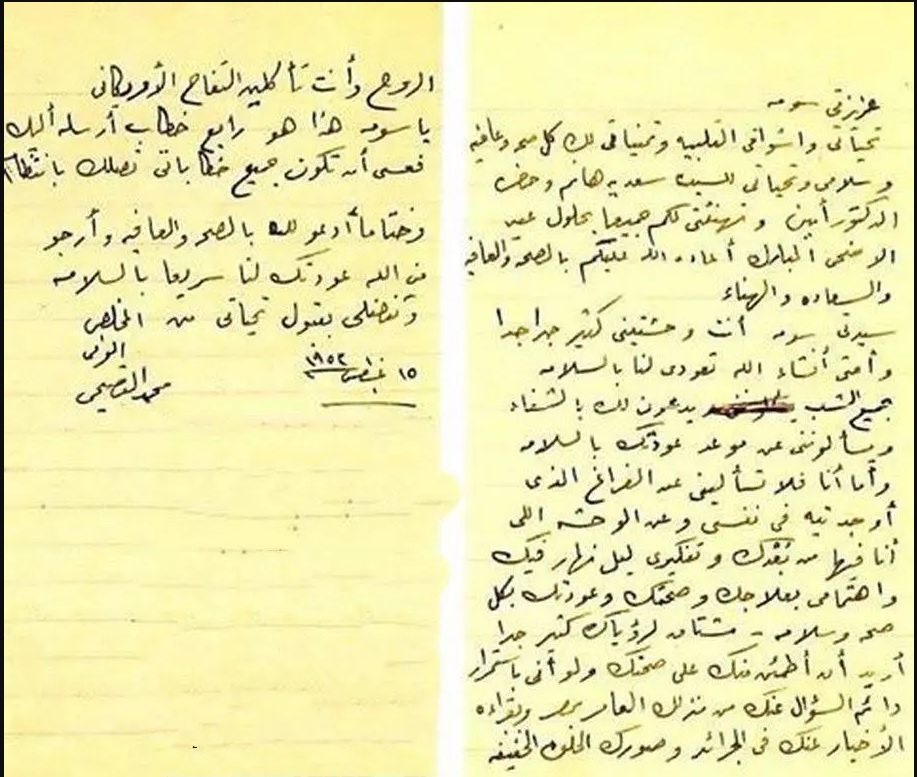 عزيزتي سومه
تحياتي واشواقي القلبيه وتمنياتي لك كل صحه وعافيه
وسلامي وتحياتي للسيده سعديه هانم وحضرة
الدكتور أيمن وتهنئتي لكم جميعا بحلول عيد
الاضحى المبارك أعاده الله عليكم بالصحه والعافيه
والسعاده والهناء
سيدتي سومه أنت وحشتيني كثير جدا جدا
وأمتى أنشاء الله تعودى لنا بالسلامه
جميع الشعب يدعون لك بالشفاء
ويسألونني عن موعد عودتك بالسلامه
وأما أنا فلا تسأليني عن الفراغ الذى
أوجدتيه في نفسى وعن الوحشه اللى
أنا فيها من بعدك وتفكيرى ليل نهار فيك
واهتمامى بعلاجك وصحتك وعودتك بكل
صحه وسلامه - مشتاق لرؤياك كثير جدا
أريد أن أطمئن منك على صحتك ولو أنى باستمرار
دائم السؤال عنك من منزلك العامر بمصر وبقراءه
الأخبار عنك فى الجرائد وصورك الحلوه الخفيفه
الروح وأنت تأكلين التفاح الأمريكانى
يا سومه هذا هو رابع خطاب أرسله أليك
فعسى أن تكون جميع خطاباتي تصلك بانتظام
وختاما أدعو لك بالصحه والعافيه وأرجو
من الله عودتك لنا سريعا بالسلامه
وتفضلى بقبول تحياتى من المخلص
الوفى
محمد القصبجي
١٥ غسطس ١٩٥٢